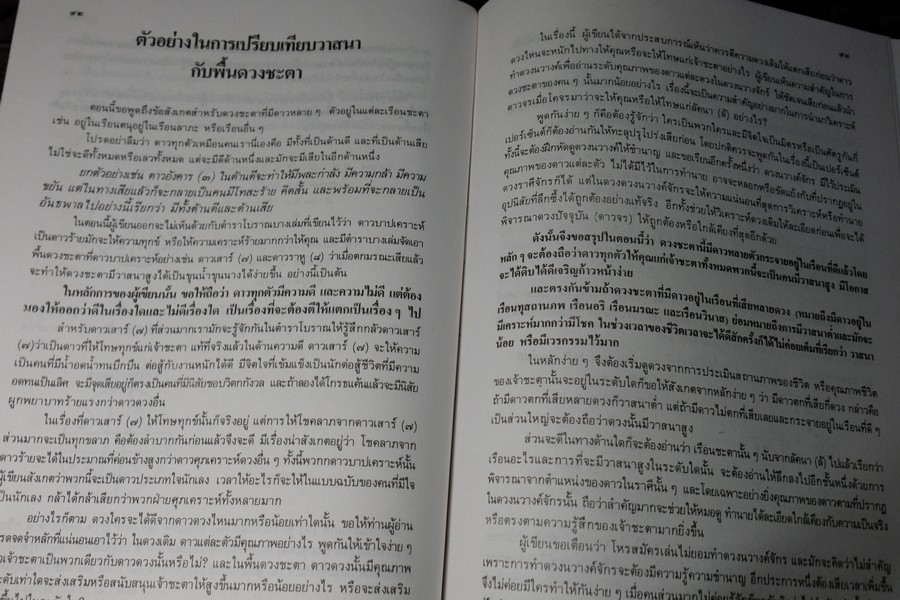 ๙๒
ตัวอย่างในการเปรียบเทียบวาสนา
กับพื้นดวงชะตา
ตอนนี้ขอพูดถึงข้อสังเกตสำหรับดวงชะตาที่มีดาวหลาย ๆ ตัวอยู่ในแต่ละเรือนชะตา
เช่น อยู่ในเรือนตนุอยู่ในเรือนลาภะ หรือเรือนอื่น ๆ
โปรดอย่าลืมว่า ดาวทุกตัวเหมือนคนเรานี่เองคือ มีทั้งที่เป็นด้านดี และที่เป็นด้านเสีย
ไม่ใช่จะดีทั้งหมดหรือเลวทั้งหมด แต่จะมีดีด้านหนึ่งและมักจะมีเสียในอีกด้านหนึ่ง
ยกตัวอย่างเช่น ดาวอังคาร (๓) ในด้านดีจะทำให้มีพละกำลัง มีความกล้า มีความ
ขยัน แต่ในทางเสียแล้วก็จะกลายเป็นคนมีโทสะร้าย คิดสั้น และพร้อมที่จะกลายเป็น
อันธพาลไปอย่างนี้เรียกว่า มีทั้งด้านดีและด้านเสีย
ในตอนนี้ผู้เขียนออกจะไม่เห็นด้วยกับตำราโบราณบางเล่มที่เขียนไว้ว่า ดาวบาปเคราะห์
เป็นดาวร้ายมักจะให้ความทุกข์ หรือให้ความเคราะห์ร้ายมากกว่าให้คุณ และมีตำราบางเล่มจัดเอา
พื้นดวงชะตาที่ดาวบาปเคราะห์อย่างเช่น ดาวเสาร์ (๗) และดาวราหู (๘) ว่าเมื่อตกมรณะเสียแล้ว
จะทำให้ดวงชะตามีวาสนาสูงได้เป็นขุนน้ำขุนนางได้ง่ายขึ้น อย่างนี้เป็นต้น
ในหลักการของผู้เขียนนั้น ขอให้ถือว่า ดาวทุกตัวมีความดี และความไม่ดี แต่ต้อง
มองให้ออกว่าดีในเรื่องใดและไม่ดีเรื่องใด เป็นเรื่องที่จะต้องตีให้แตกเป็นเรื่อง ๆ ไป
สำหรับดาวเสาร์ (๗) ที่ส่วนมากเรามักจะรู้จักกันในตำราโบราณให้รู้สึกกลัวดาวเสาร์
(๗)ว่าเป็นดาวที่ให้โทษทุกข์แก่เจ้าชะตา แท้ที่จริงแล้วในด้านความดี ดาวเสาร์ (๗) จะให้ความ
เป็นคนที่มีน้ำอดน้ำทนบึกบึน ต่อสู้กับงานหนักได้ดี มีจิตใจที่เข้มแข็งเป็นนักต่อสู้ชีวิตที่มีความ
อดทนเป็นเลิศ จะมีจุดเสียอยู่ก็ตรงเป็นคนที่มีนิสัยชอบวิตกกังวล และถ้าลองได้โกรธแค้นแล้วจะมีนิสัย
ผูกพยาบาทร้ายแรงกว่าดาวดวงอื่น
ในเรื่องที่ดาวเสาร์ (๗) ให้โทษทุกข์นั้นก็จริงอยู่ แต่การให้โชคลาภดาวเสาร์ (๗)
ส่วนมากจะเป็นทุกขลาภ คือต้องลำบากกันก่อนแล้วจึงจะดี มีเรื่องน่าสังเกตอยู่ว่า โชคลาภจาก
ดาวร้ายจะได้ในประมาณที่ค่อนข้างสูงกว่าดาวศุภเคราะห์ดวงอื่น ๆ ทั้งนี้พวกดาวบาปเคราะห์นั้น
ผู้เขียนสังเกตว่าพวกนี้จะเป็นดาวประเภทใจนักเลง เวลาให้อะไรก็จะให้ในแบบฉบับของคนที่มีใจ
เป็นนักเลง กล้าได้กล้าเสียกว่าพวกฝ่ายศุภเคราะห์ทั้งหลายมาก
อย่างไรก็ตาม ดวงใครจะได้ดีจากดาวดวงไหนมากหรือน้อยเท่าใดนั้น ขอให้ท่านผู้อ่าน
รดจดจำหลักที่แน่นอนเอาไว้ว่า ในดวงเดิม ดาวแต่ละตัวมีคุณภาพอย่างไร พูดกันให้เข้าใจง่าย ๆ
อเจ้าชะตาเป็นพวกเดียวกับดาวดวงนั้นหรือไม่? และในพื้นดวงชะตา ดาวดวงนั้นมีคุณภาพ
ะดับเท่าใดจะส่งเสริมหรือสนับสนุนเจ้าชะตาให้สูงขึ้นมากหรือน้อยอย่างไร หรือจะส่งเสริม
๙๓
ในเรื่องนี้ ผู้เขียนได้จากประสบการณ์เห็นว่าควรตีความดวงเดิมให้แตกเสียก่อนว่าดาว
ดวงไหนจะหนักไปทางให้คุณหรือจะให้โทษแก่เจ้าชะตาอย่างไร ผู้เขียนเห็นความสำคัญในการ
ทำดวงวางค์เพื่ออ่านระดับคุณภาพของดาวแต่ละดวงในดวงนวางจักร์ ได้ชัดเจนเสียก่อนแล้วนำ
ดวงชะตาของคน ๆ นั้นมากน้อยอย่างไร เรื่องนี้จะเป็นความสำคัญอย่างมากในการนำมาวิเคราะห์
ดาวจรเมื่อโคจรมาว่าจะให้คุณหรือให้โทษแก่ลัคนา (ลั) อย่างไร?
พูดกันง่าย ๆ ก็คือต้องรู้จักว่า ใครเป็นพวกใครและมีจิตใจเป็นมิตรหรือเป็นศัตรูกันกี่
เปอร์เซ็นต์ก็ต้องอ่านกันให้ทะลุปรุโปร่งเสียก่อน โดยปกติควรจะพูดกันเรื่องนี้เป็นเปอร์เซ็นต์
ทั้งนี้จะต้องฝึกหัดดูดวงนวางค์ให้ชำนาญ และขอเรียนอีกครั้งหนึ่งว่า ดวงนวางค์จักร มีไว้ประเมิน
คุณภาพของดาวแต่ละตัว ไม่ได้มีไว้ในการทำนาย อาจจะหลอกหรือขัดแย้งกับที่ปรากฏอยู่ใน
ดวงราศีจักรก็ได้ แต่ในดวงนวางค์จักรจะให้ความแน่นอนที่สุดการวิเคราะห์หรือทำนาย
อุปนิสัยที่ลึกซึ้งได้ถูกต้องอย่างแท้จริง อีกทั้งช่วยให้วิเคราะห์ดวงเดิมให้ละเอียดก่อนเพื่อจะได้
พิจารณาดวงปัจจุบัน (ดาวจร) ให้ถูกต้องหรือใกล้เคียงที่สุดอีกด้วย
ดังนั้นจึงขอสรุปในตอนนี้ว่า ดวงชะตานี้มีดาวหลายตัวกระจายอยู่ในเรือนที่ดีแล้วโดย
หลัก ๆ จะต้องถือว่าดาวทุกตัวให้คุณแก่เจ้าชะตาทั้งหมดพวกนี้จะเป็นคนมีวาสนาสูง มีโอกาส
จะได้ดิบได้ดีเจริญก้าวหน้าง่าย
และตรงกันข้ามถ้าดวงชะตาที่มีดาวอยู่ในเรือนที่เสียหลายดวง (หมายถึงมีดาวอยู่ใน
เรือนทุสถานภพ เรือนอริ เรือนมรณะ และเรือนวินาส) ย่อมหมายถึงการมีวาสนาต่ำและมักจะ
มีเคราะห์มากกว่ามีโชค ในช่วงเวลาของชีวิตเวลาจะได้ดีสักครั้งก็ได้ไม่ค่อยเต็มที่เรียกว่า วาสนา
น้อย หรือมีเวรกรรมไว้มาก
ในหลักง่าย ๆ จึงต้องเริ่มดูดวงจากการประเมินสถานภาพของชีวิต หรือคุณภาพชีวิต
ของเจ้าชะตานั้นจะอยู่ในระดับใดก็ขอให้สังเกตจากหลักง่าย ๆ ว่า มีดาวตกที่เสียกี่ดวง กล่าวคือ
ถ้ามีดาวตกที่เสียหลายดวงก็วาสนาต่ำ แต่ถ้ามีดาวไม่ตกที่เสียเลยและกระจายอยู่ในเรือนที่ดี ๆ
เป็นส่วนใหญ่จะต้องถือว่าดวงนั้นมีวาสนาสูง
ส่วนจะดีในทางด้านใดก็จะต้องอ่านว่า เรือนชะตานั้น ๆ นับจากลัคนา (ลั) ไปแล้วเรียกว่า
เรือนอะไรและการที่จะมีวาสนาสูงในระดับใดนั้น จะต้องอ่านให้ลึกลงไปอีกชั้นหนึ่งด้วยการ
พิจารณาจากตำแหน่งของดาวในราศีนั้น ๆ และโดยเฉพาะอย่างยิ่งคุณภาพของดาวตามที่ปรากฏ
ในดวงนวางค์จักรนั้น ถือว่าสำคัญมากจะช่วยให้หมอดู ทำนายได้ละเอียดใกล้เคียงกับความเป็นจริง
หรือตรงตามความรู้สึกของเจ้าชะตามากยิ่งขึ้น
ผู้เขียนขอเตือนว่า โหรสมัครเล่นไม่ยอมทำดวงนวางค์จักร และมักจะคิดว่าไม่สำคัญ
เพราะการทำดวงนวางค์จักรจะต้องมีความรู้ความชำนาญ อีกประการหนึ่งต้องเสียเวลาเพิ่มขึ้น
จึงไม่ค่อยมีใครทำให้กันง่าย ๆ